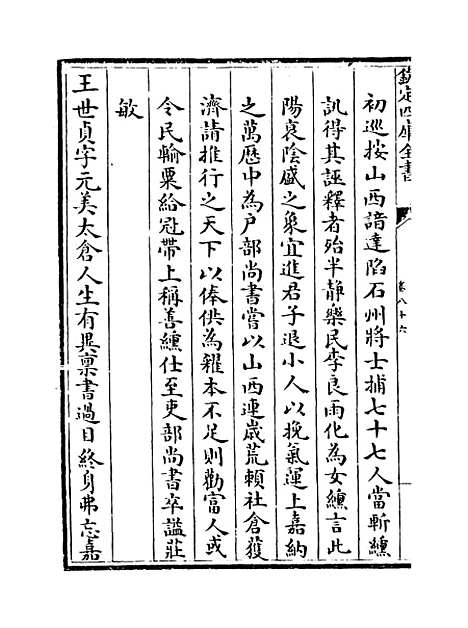 欽定四庫全書
卷八十六
初巡按山西諳達陷石州將士捕七十七人當斬纁
訊得其誣釋者殆半静樂民李良雨化為女纁言此
陽衰陰盛之象宜進君子退小人以挽氣運上嘉納
之萬厯中為户部尚書嘗以山西連歲荒頼社倉獲
濟請推行之天下以俸供為糴本不足則勸富人或
令民輸粟給冠帶上稱善纁仕至吏部尚書卒諡莊
敏
王世貞字元美太倉人生有異禀書過目終身弗忘嘉